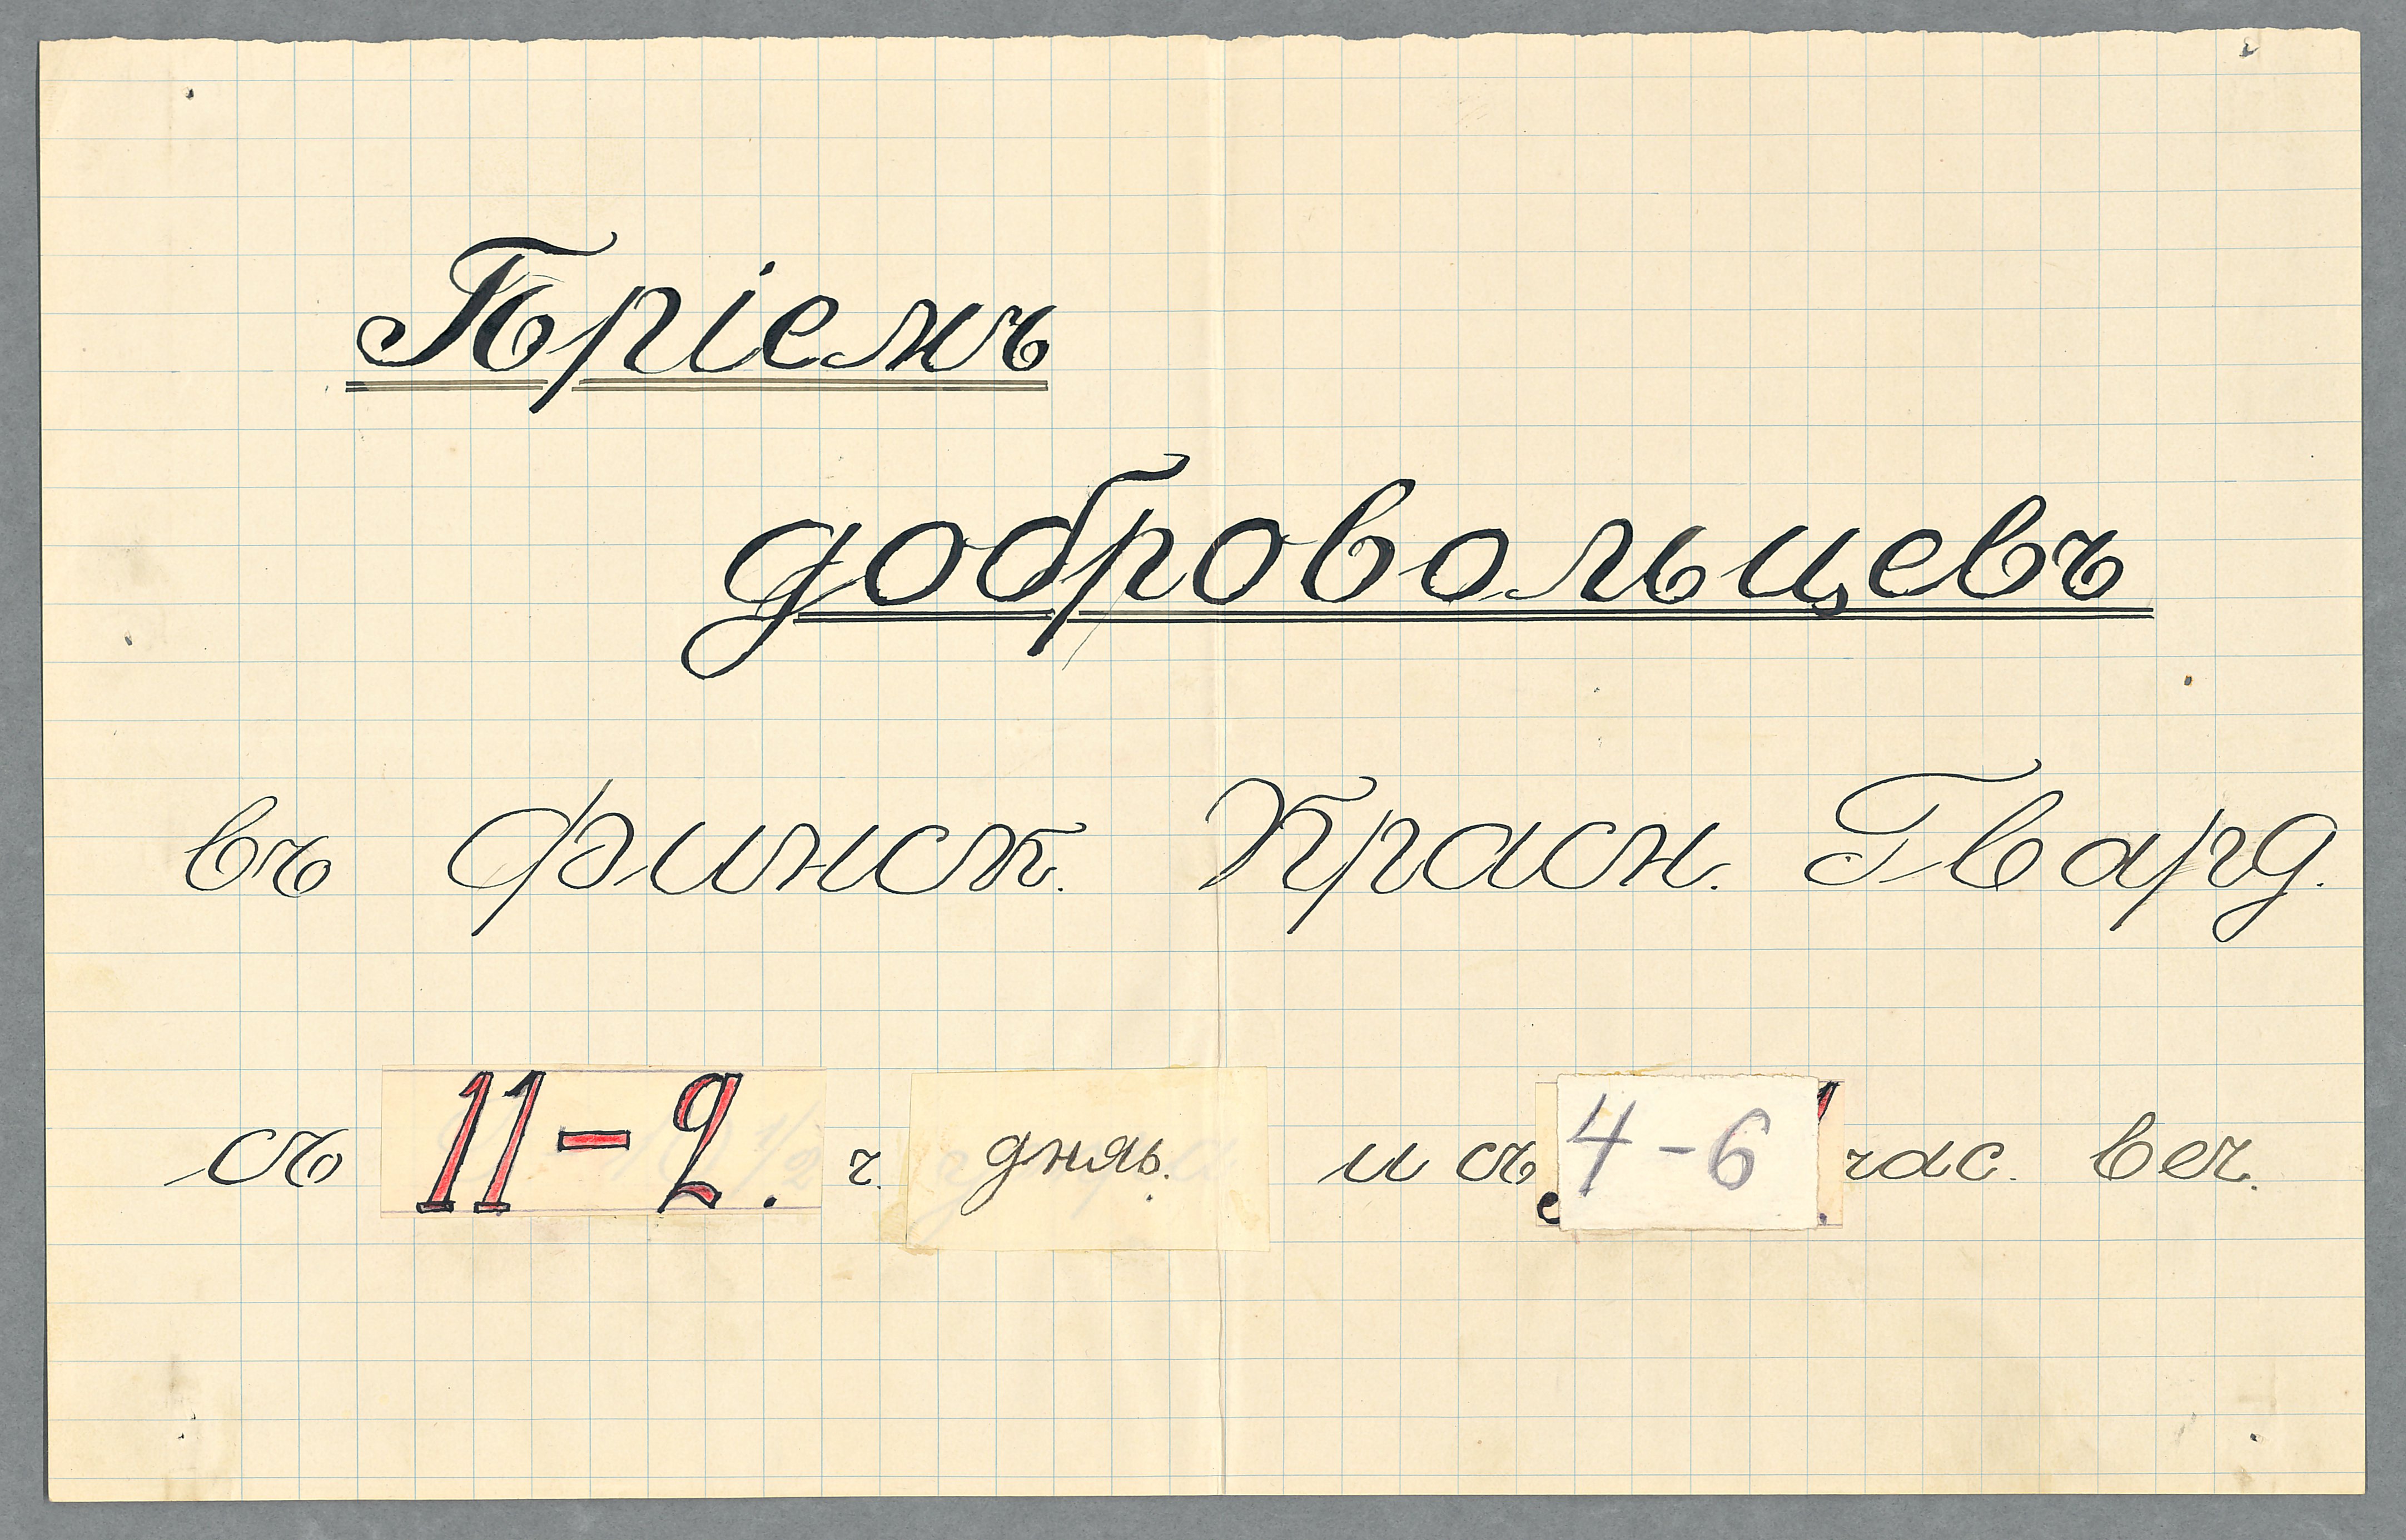 Пріемъ
добровольцевъ
въ Финск. Красн. Гвард.
съ 11-2. ч. дняь. и съ 4-6 час. веч.